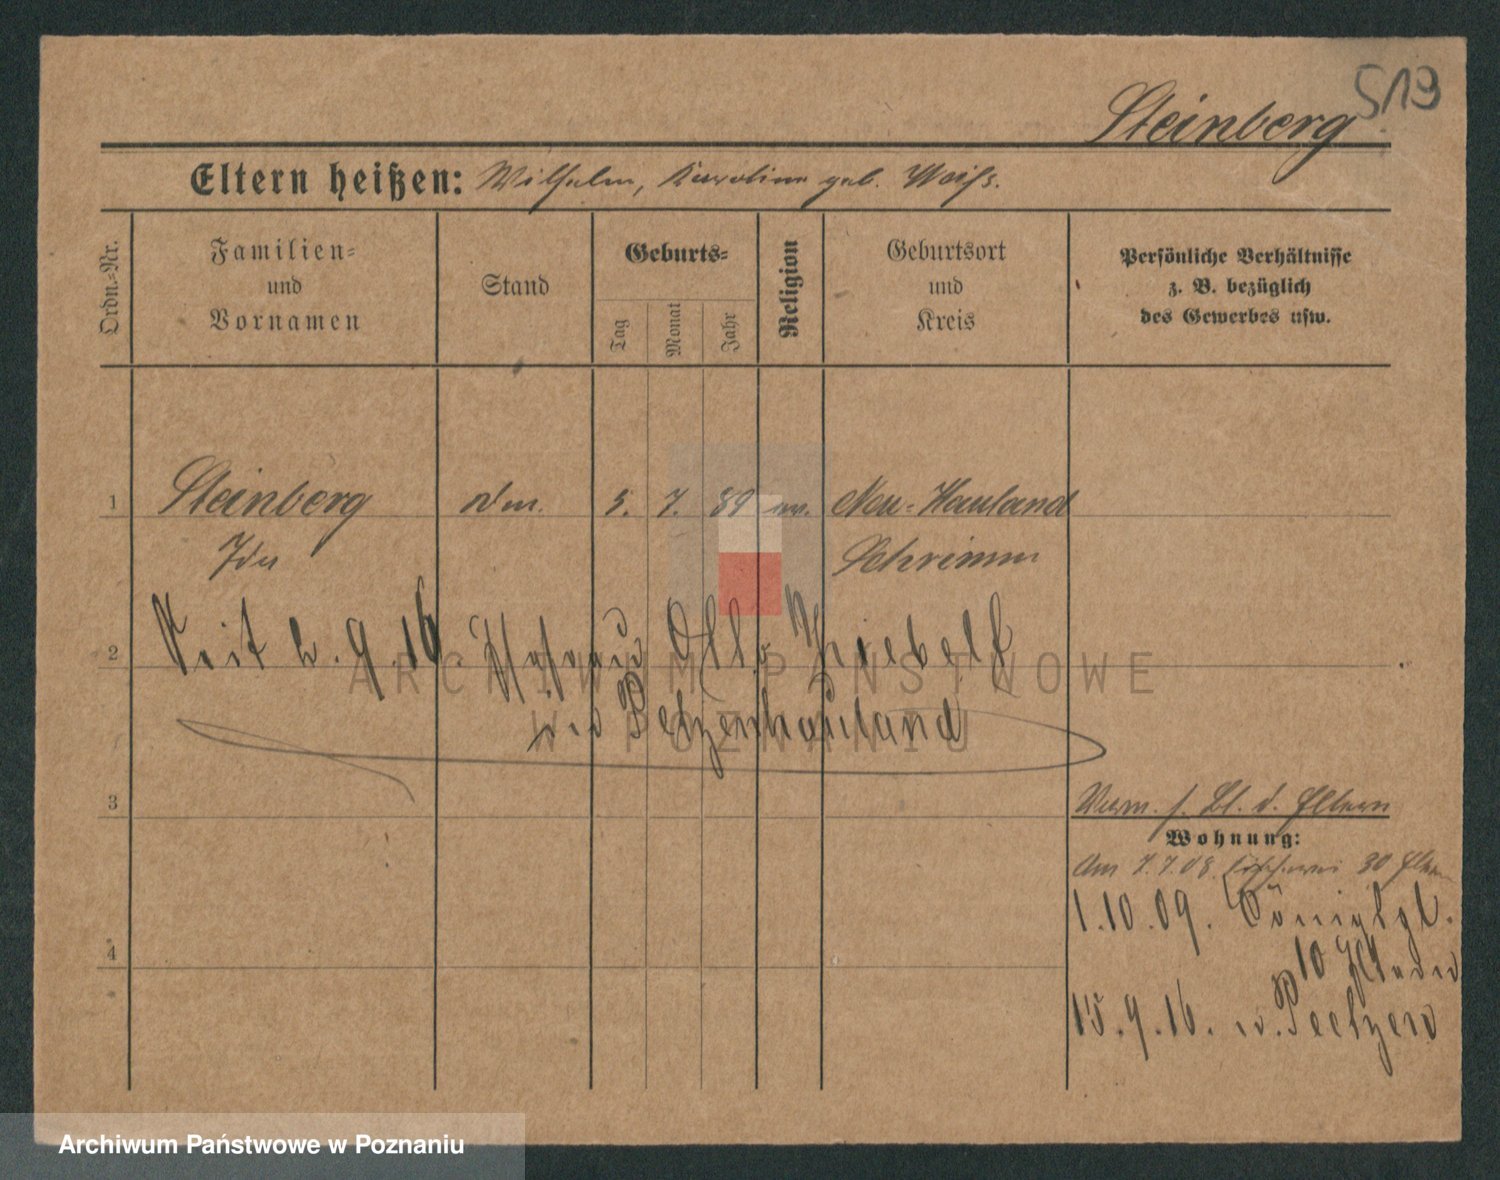 519
Steinberg
Eltern heißen: Wilhelm, Karoline geb. Weiß.
Ordn.-Nr.
Familien-
und
Vornamen
Stand
Geburts-
Tag
Monat
Jahr
Religion
Geburtsort
und
Kreis
Persönliche Verhältnisse
z. B. bezüglich
des Gewerbes usw.
1 Steinberg 5. 7. 89 ev. Neu-Hauland
Ida Schrimm
Seit 2.9.16. Otto
2
in
3
Verm. s. Bl. d. Eltern
Wohnung:
Am 1.7.08. 30 Eltern
1.10.09. Königspl.
10
4
15.9.16. n.
ARCHIWUM PAŃSTWOWE
W POZNANIU
Archiwum Państwowe w Poznaniu